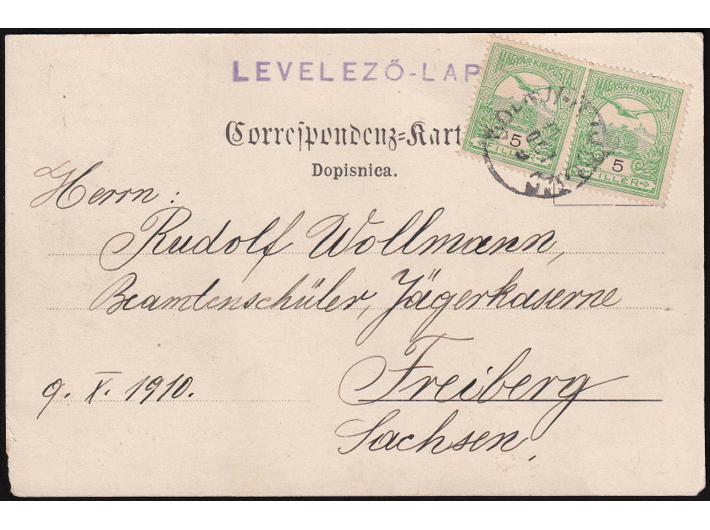 LEVELEZŐ-LAP
Correspondenz=Kart
Dopisnica.
MAGYAR KIR. POSTA
5
FILLÉR
MAGYAR KIR. POSTA
5
FILLÉR
Herrn:
Rudolf Wollmann,
Beamtenschüler, Jägerkaserne
9. X. 1910.
Freiberg
Sachsen.